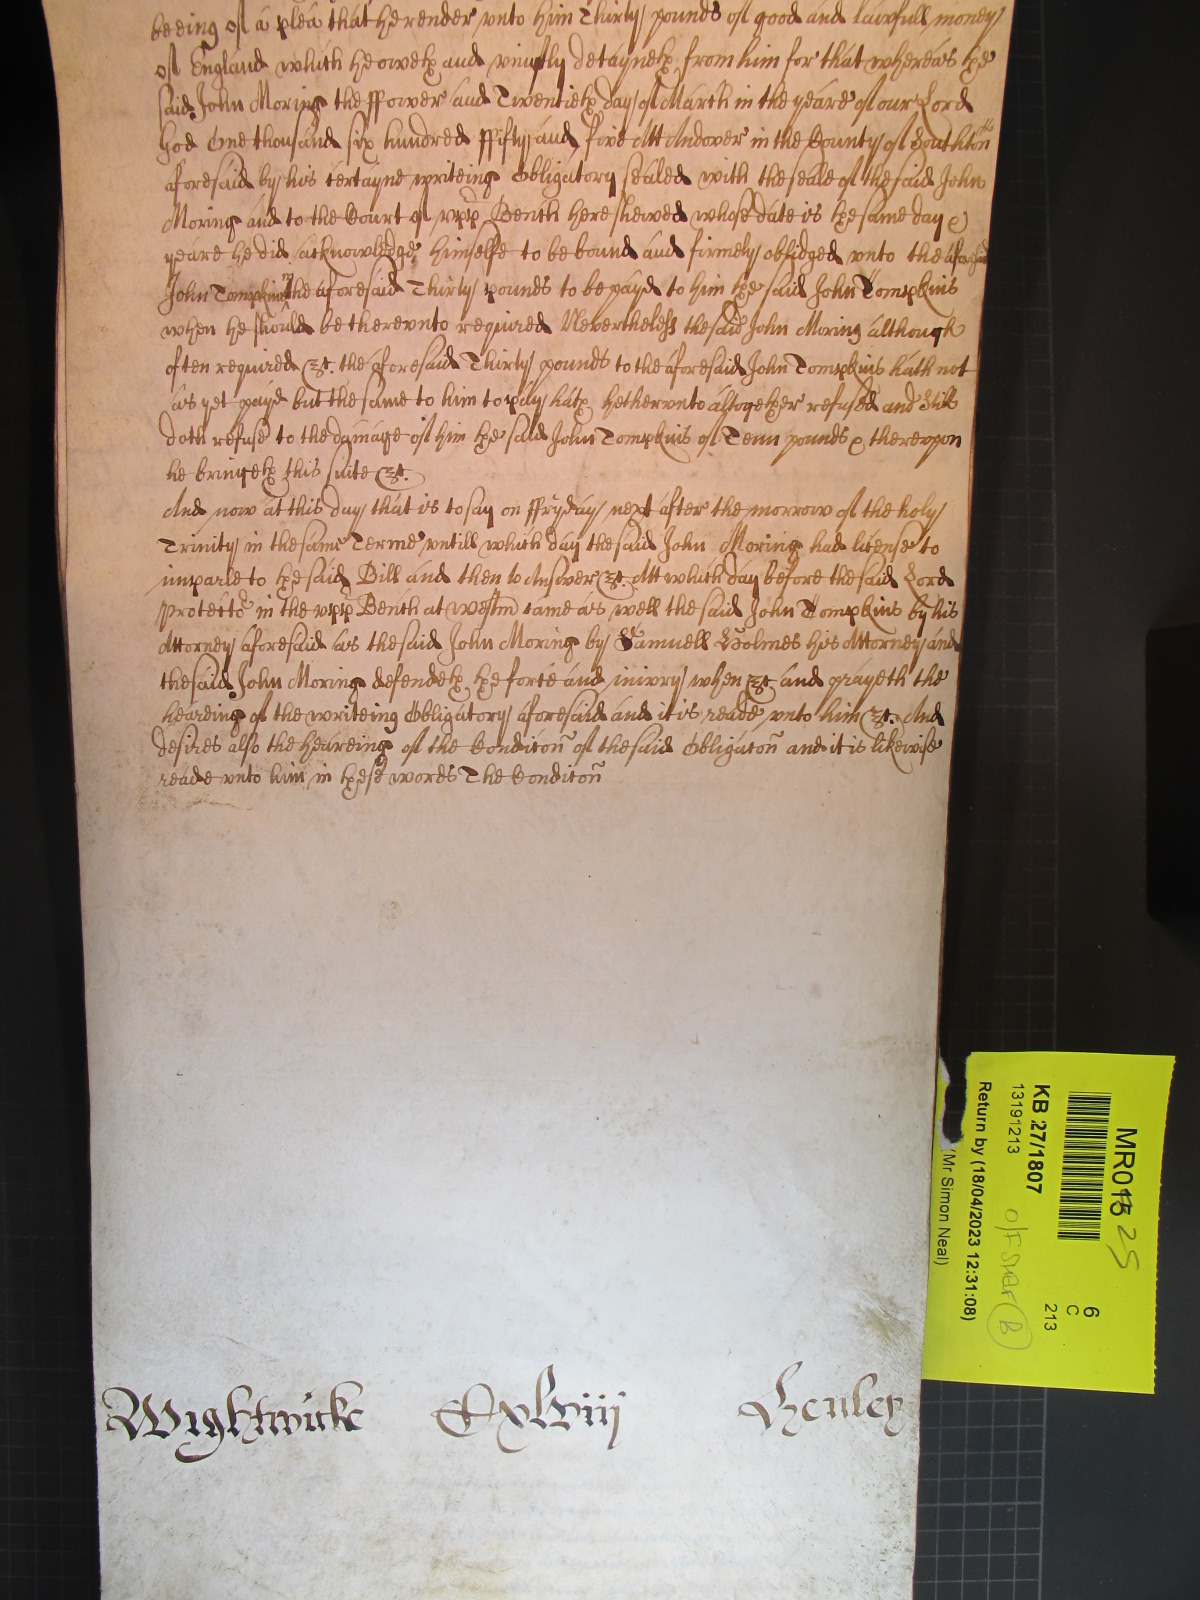 beeing of a plea that he render vnto him Thirty pounds of good and lawfull money
of England which he oweth and vniustly detayneth from him for that whereas the
said John Moring the ffower and Twentieth day of March in the yeare of our Lord
God One thousand six hundred ffifty and five Att Andover in the County of Southton
aforesaid by his certayne writeing Obligatory sealed with the seale of the said John
Moring and to the Court of vpp Bench here shewed whose date is the same day &
yeare he did acknowledge himselfe to be bound and firmely obliged vnto the aforesaid
John Tompkins in the aforesaid Thirty pounds to be payd to him the said John Tompkins
when he should be therevnto required Neverthelesse the said John Moring although
often required &c. the aforesaid Thirty pounds to the aforesaid John Tompkins hath not
as yet payd but the same to him to pay hath hethervnto altogether refused and Still
doth refuse to the damage of him the said John Tompkins of Tenn pounds & therevpon
he bringeth this suite &c.
And now at this day that is to say on ffryday next after the morrow of the holy
Trinity in the same Terme vntill which day the said John Moring had license to
imparle to the said Bill and then to Answer &c. Att which day before the said Lord
Protector in the vpp Bench at Westm came as well the said John Tompkins by his
Attorney aforesaid as the said John Moring by Samuell Holmes his Attorney and
the said John Moring defendeth the force and iniury when &c and prayeth the
heareing of the writeing Obligatory aforesaid and it is reade vnto him &c. And
desires also the heareing of the Conditon of the said Obligaton and it is likewise
reade vnto him in these words The Conditon
Wightwicke Cxlviij Henley
MR016 25
6
C
213
KB 27/1807
13191213
Return by (18/04/2023 12:31:08)
(Mr Simon Neal)